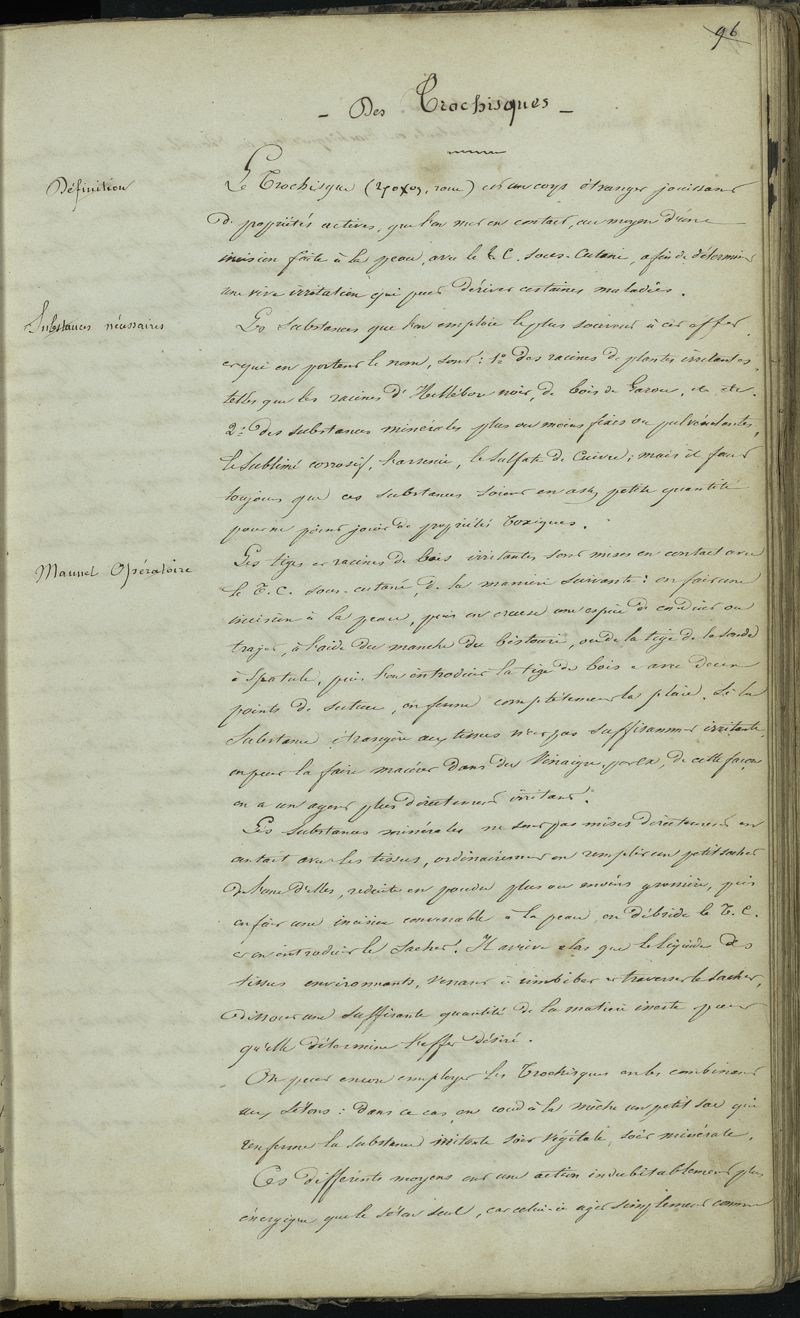 96
- Des Trochisques -
Définition
Le Trochisque (τροχος, roue) est un corps étranger jouissant
de propriétés actives, que l'on met en contact, au moyen d'une
incision faite à la peau, avec le T. C. sous-cutané, afin de déterminer
une vive irritation qui peut dériver certaines maladies.
Substances nécessaires
Les Substances que l'on emploie le plus souvent à cet effet
et qui en portent le nom, sont: 1º des racines de plantes irritantes,
telles que les racines d'Hellébore noir, de bois de Garou, etc etc.
2º des substances minérales plus ou moins fines ou pulvérulentes,
le Sublimé corrosif, l'arsenic, le sulfate de Cuivre; mais il faut
toujours que ces substances soient en assez petite quantité
pour ne point jouir de propriétés toxiques.
Manuel Opératoire
Les tiges et racines de bois irritantes sont mises en contact avec
le T. C. sous-cutané, de la manière suivante: on fait une
incision à la peau, puis on creuse une espèce de conduit ou
trajet, à l'aide du manche du bistouri, ou de la tige de la sonde
à Spatule, puis l'on introduit la tige de bois et avec deux
points de suture, on ferme complètement la plaie. Si la
Substance étrangère aux tissus n'est pas suffisamment irritante,
on peut la faire macérer dans du Vinaigre, par ex, de cette façon
on a un agent plus directement irritant.
Les Substances minérales ne sont pas mises directement en
contact avec les tissus, ordinairement on remplit un petit sachet
de l'une d'elles, réduite en poudre plus ou moins grossière, puis
on fait une incision convenable à la peau, on débride le T. C.
et on introduit le Sachet. Il arrive alors que le liquide des
tissus environnants, venant à imbiber et traverser le sachet,
dissout une suffisante quantité de la matière inerte pour
qu'elle détermine l'effet désiré.
On peut encore employer les Trochisques en les combinant
aux sétons: dans ce cas, on coud à la mèche un petit sac qui
renferme la substance irritante soit végétale, soit minérale.
Ces différents moyens ont une action indubitablement plus
énergique que le séton seul, car celui-ci agit simplement comme